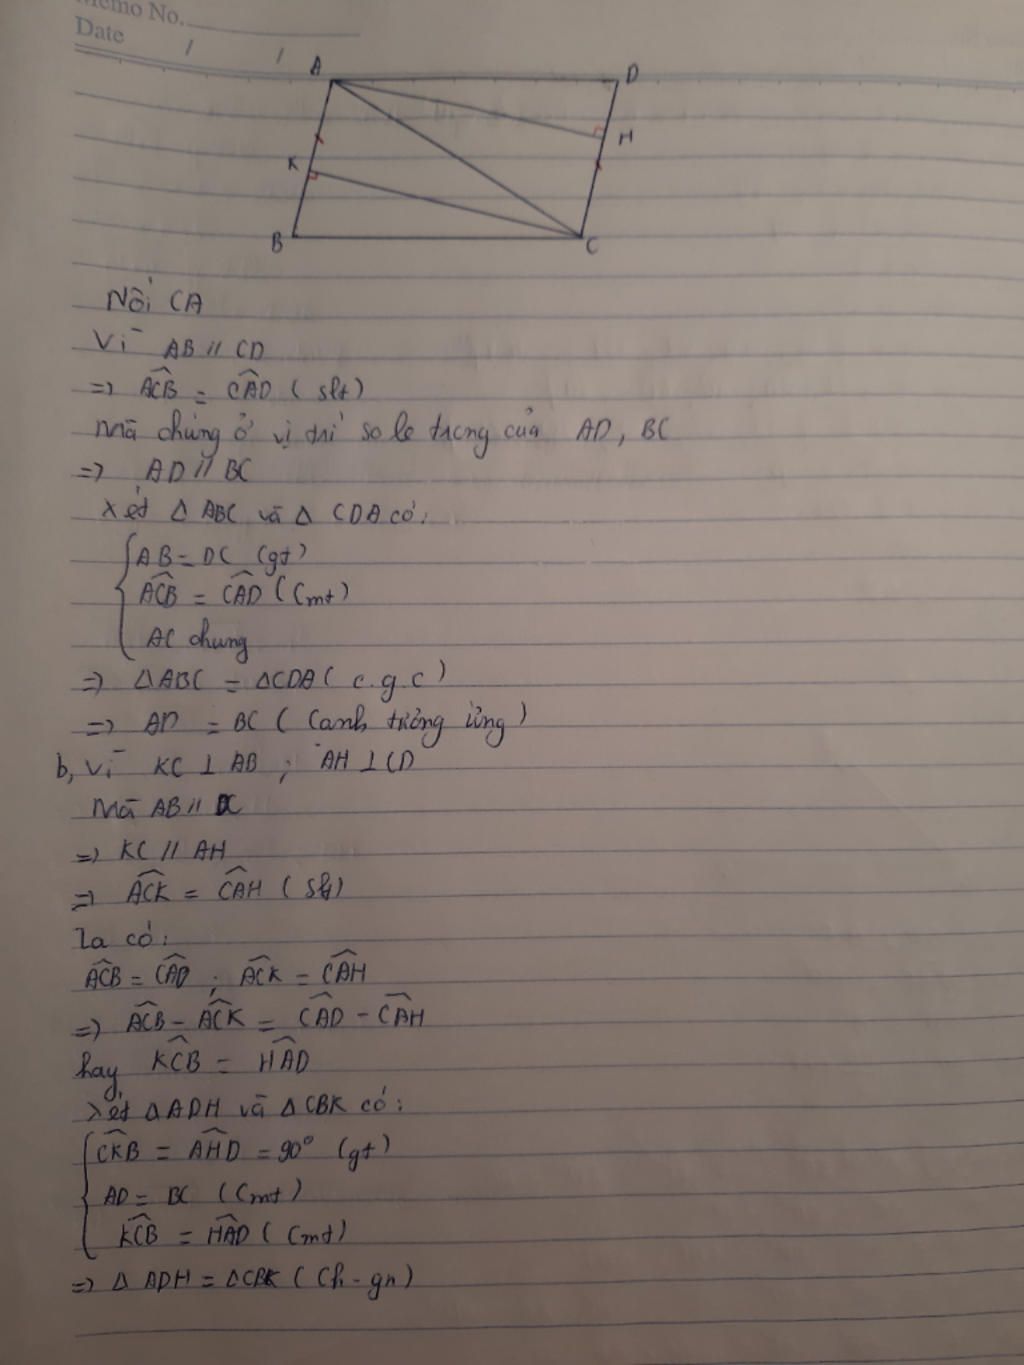 Memo No.
Date / /
A
D
H
K
B
C
Nối CA
Vì AB // CD
=> ACB = CAD ( slt)
Mà chúng ở vị trí so le trong của AD, BC
=> AD // BC
Xét Δ ABC và Δ CDA có:
AB = DC (gt)
ACB = CAD (Cmt)
AC chung
=> ΔABC = ΔCDA ( c.g.c )
=> AD = BC ( Cạnh tương ứng )
b, Vì KC ⊥ AB ; AH ⊥ CD
Mà AB // DC
=> KC // AH
=> ACK = CAH ( Slt)
Ta có:
ACB = CAD ; ACK = CAH
=> ACB - ACK = CAD - CAH
hay KCB = HAD
Xét ΔADH và ΔCBK có:
CKB = AHD = 90° (gt)
AD = BC (Cmt)
KCB = HAD ( Cmt)
=> Δ ADH = ΔCBK ( Ch - gn )